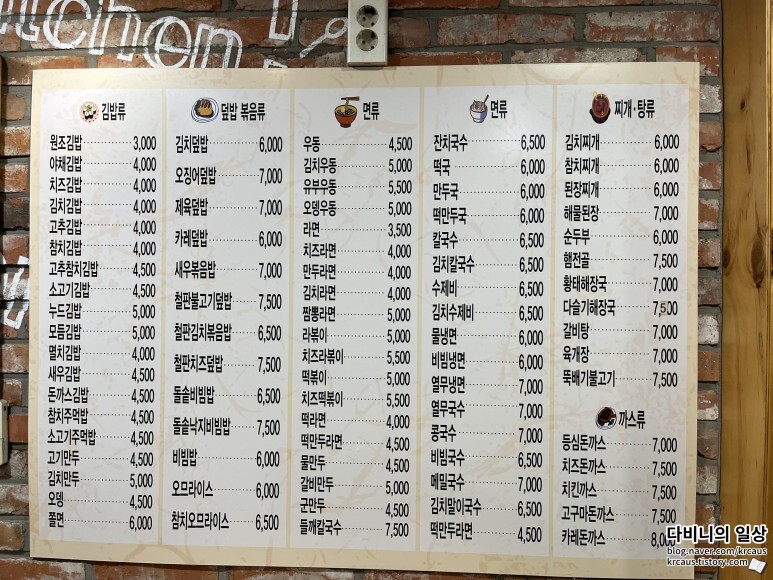 kitchen
김밥류
원조김밥 3,000
야채김밥 4,000
치즈김밥 4,000
김치김밥 4,000
고추김밥 4,000
참치김밥 4,000
고추참치김밥 4,500
소고기김밥 4,500
누드김밥 5,000
모듬김밥 5,000
멸치김밥 4,000
새우김밥 4,500
돈까스김밥 4,500
참치주먹밥 4,500
소고기주먹밥 4,500
고기만두 4,500
김치만두 5,000
오뎅 4,500
쫄면 6,000
덮밥 볶음류
김치덮밥 6,000
오징어덮밥 7,000
제육덮밥 7,000
카레덮밥 6,000
새우볶음밥 7,000
철판불고기덮밥 7,500
철판김치볶음밥 6,500
철판치즈덮밥 7,500
돌솥비빔밥 6,500
돌솥낙지비빔밥 7,500
비빔밥 6,000
오므라이스 6,000
참치오므라이스 6,500
면류
우동 4,500
김치우동 5,000
유부우동 5,500
오뎅우동 5,000
라면 3,500
치즈라면 4,000
만두라면 4,000
김치라면 4,000
짬뽕라면 5,000
라볶이 5,000
치즈라볶이 5,500
떡볶이 5,000
치즈떡볶이 5,500
떡라면 4,000
떡만두라면 4,500
물만두 4,500
갈비만두 5,000
군만두 4,500
들깨칼국수 7,500
면류
잔치국수 6,500
떡국 6,000
만두국 6,000
떡만두국 6,000
칼국수 6,500
김치칼국수 6,500
수제비 6,500
김치수제비 6,500
물냉면 6,000
비빔냉면 6,000
열무냉면 7,000
열무국수 7,000
콩국수 7,000
비빔국수 6,500
메밀국수 7,000
김치말이국수 6,500
떡만두라면 4,500
찌개·탕류
김치찌개 6,000
참치찌개 6,000
된장찌개 6,000
해물된장 7,000
순두부 6,000
햄전골 7,500
황태해장국 7,000
다슬기해장국 7,500
갈비탕 7,000
육개장 7,000
뚝배기불고기 7,500
까스류
등심돈까스 7,000
치즈돈까스 7,500
치킨까스 7,500
고구마돈까스 7,500
카레돈까스 8,000
다비니의 일상
blog.naver.com/krcaus
krcaus.tistory.com